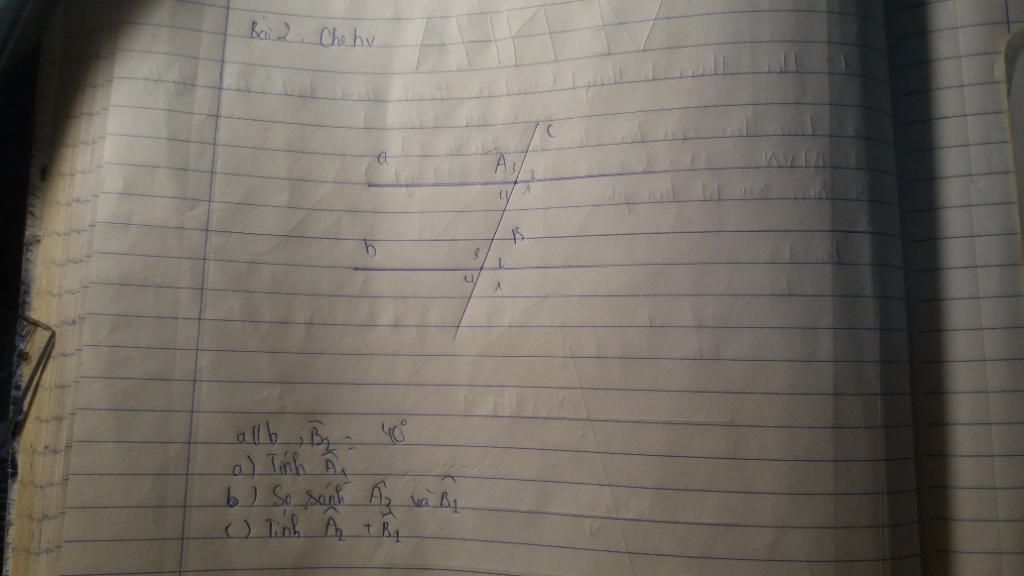 Bài 2. Cho hv
c
a
A 3 2
4 1
B
b
3 2
4 1
a//b, B̂2 = 40°
a) Tính Â1
b) So sánh Â3 và B̂1
c) Tính Â2 + B̂1